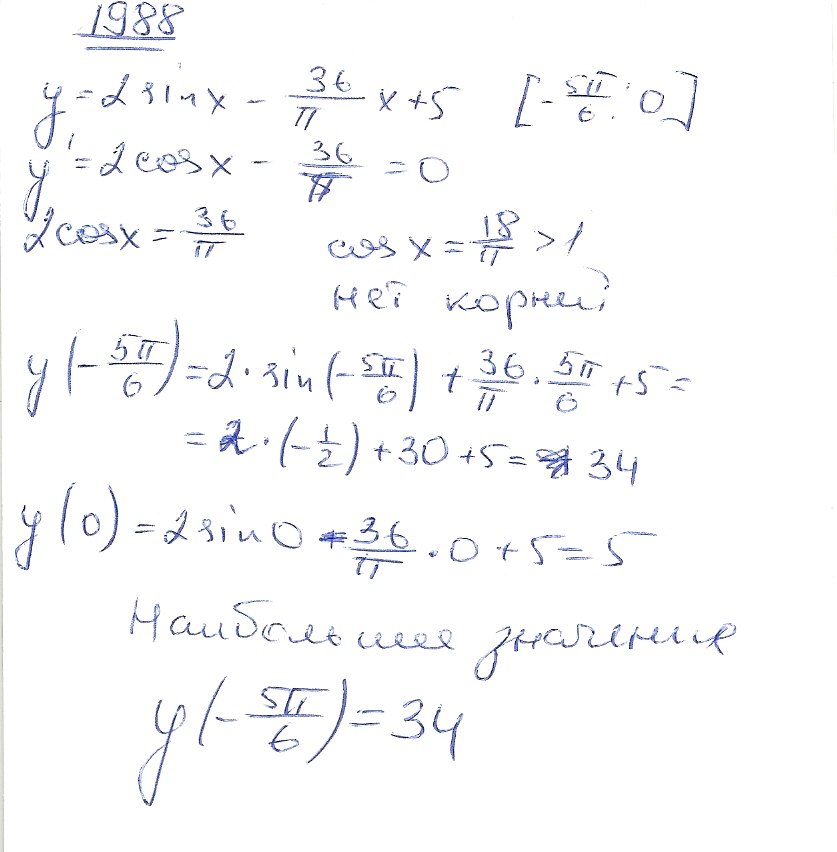 1988
y = 2 sin x − 36/π x + 5 [−5π/6; 0]
y' = 2 cos x − 36/π = 0
2 cos x = 36/π cos x = 18/π > 1
нет корней
y(−5π/6) = 2 · sin(−5π/6) + 36/π · 5π/6 + 5 =
= 2 · (−1/2) + 30 + 5 = 34
y(0) = 2 sin 0 − 36/π · 0 + 5 = 5
Наибольшее значение
y(−5π/6) = 34